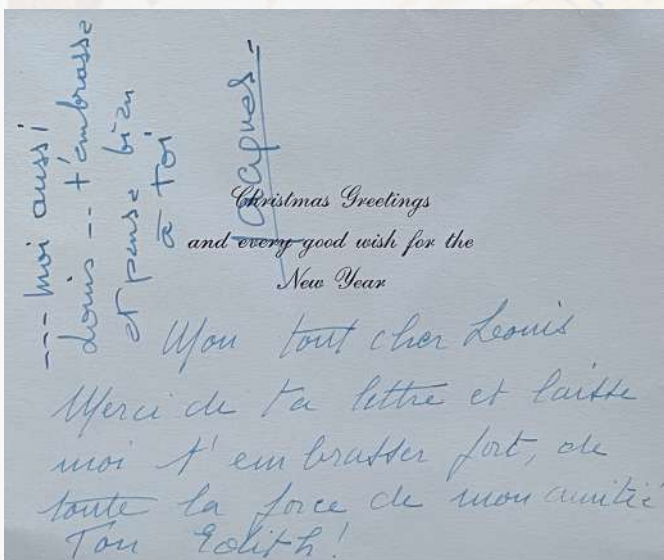 --- moi aussi
Louis -- t'embrasse
et pense bien
à toi
Jacques -
Christmas Greetings
and every good wish for the
New Year
Mon tout cher Louis
Merci de ta lettre et laisse
moi t'embrasser fort, de
toute la force de mon amitié
Ton Edith!